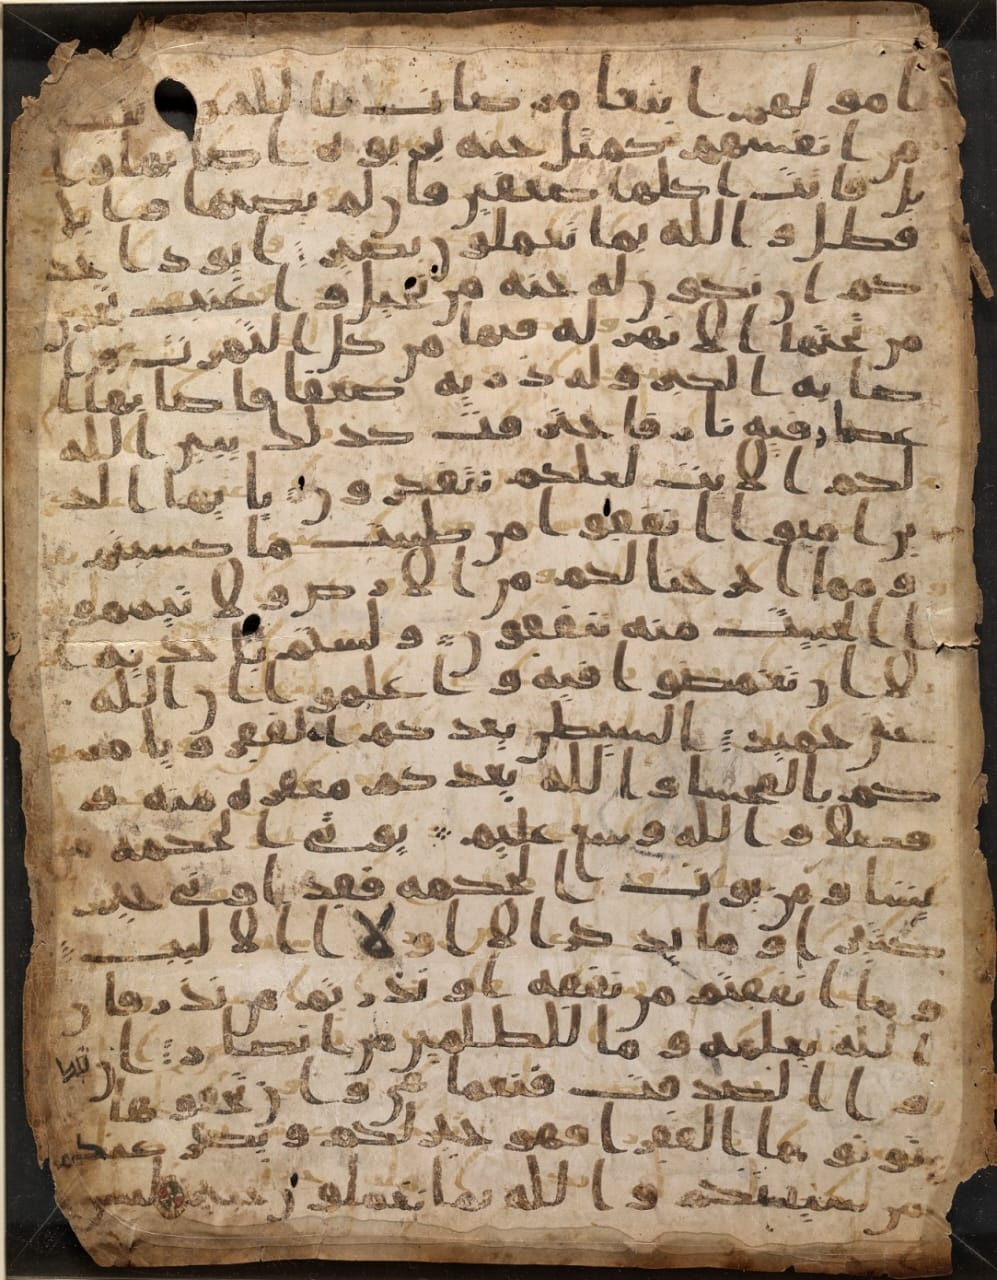 ا مو لهم ا بتغا مر ضات ا لله و تثبيتا
من ا نفسهم كمثل جنه بربوه ا صا بها و ا
بل فاتت ا كلها ضعفين فا ن لم يصبها و ا بل
فطل و الله بما تعملون بصير ا يود ا حد
كم ا ن تكون له جنه من نخيل و ا عنب تجري
من تحتها ا لا نهر له فيها من كل ا لثمرت و ا
صا به ا لكبر و له ذريه ضعفا فا صا بها ا
عصار فيه نار فا حترقت كذلك يبين ا لله
لكم ا لا يت لعلكم تتفكرون يا يها ا لذ
ين ا منوا ا نفقوا من طيبت ما كسبتم
و مما ا خرجنا لكم من ا لا رض و لا تيمموا
ا لخبيث منه تنفقون و لستم با خذيه ا
لا ا ن تغمضوا فيه و ا علموا ا ن ا لله
غني حميد ا لشيطن يعد كم ا لفقر و يا مر
كم با لفحشا و ا لله يعد كم مغفره منه و
فضلا و ا لله و سع عليم يوتي ا لحكمه من
يشا و من يوت ا لحكمه فقد ا وتي خيرا
كثيرا و ما يذكر ا لا ا و لا ا لا لبب
و ما ا نفقتم من نفقه ا و نذ رتم من نذ ر فا ن
ا لله يعلمه و ما للظلمين من ا نصا ر ا ن تبد
و ا ا لصد قت فنعما هي و ا ن تخفوها
و توتو ها ا لفقرا فهو خير لكم و يكفر عنكم
من سيتكم و ا لله بما تعملون خبير ليس